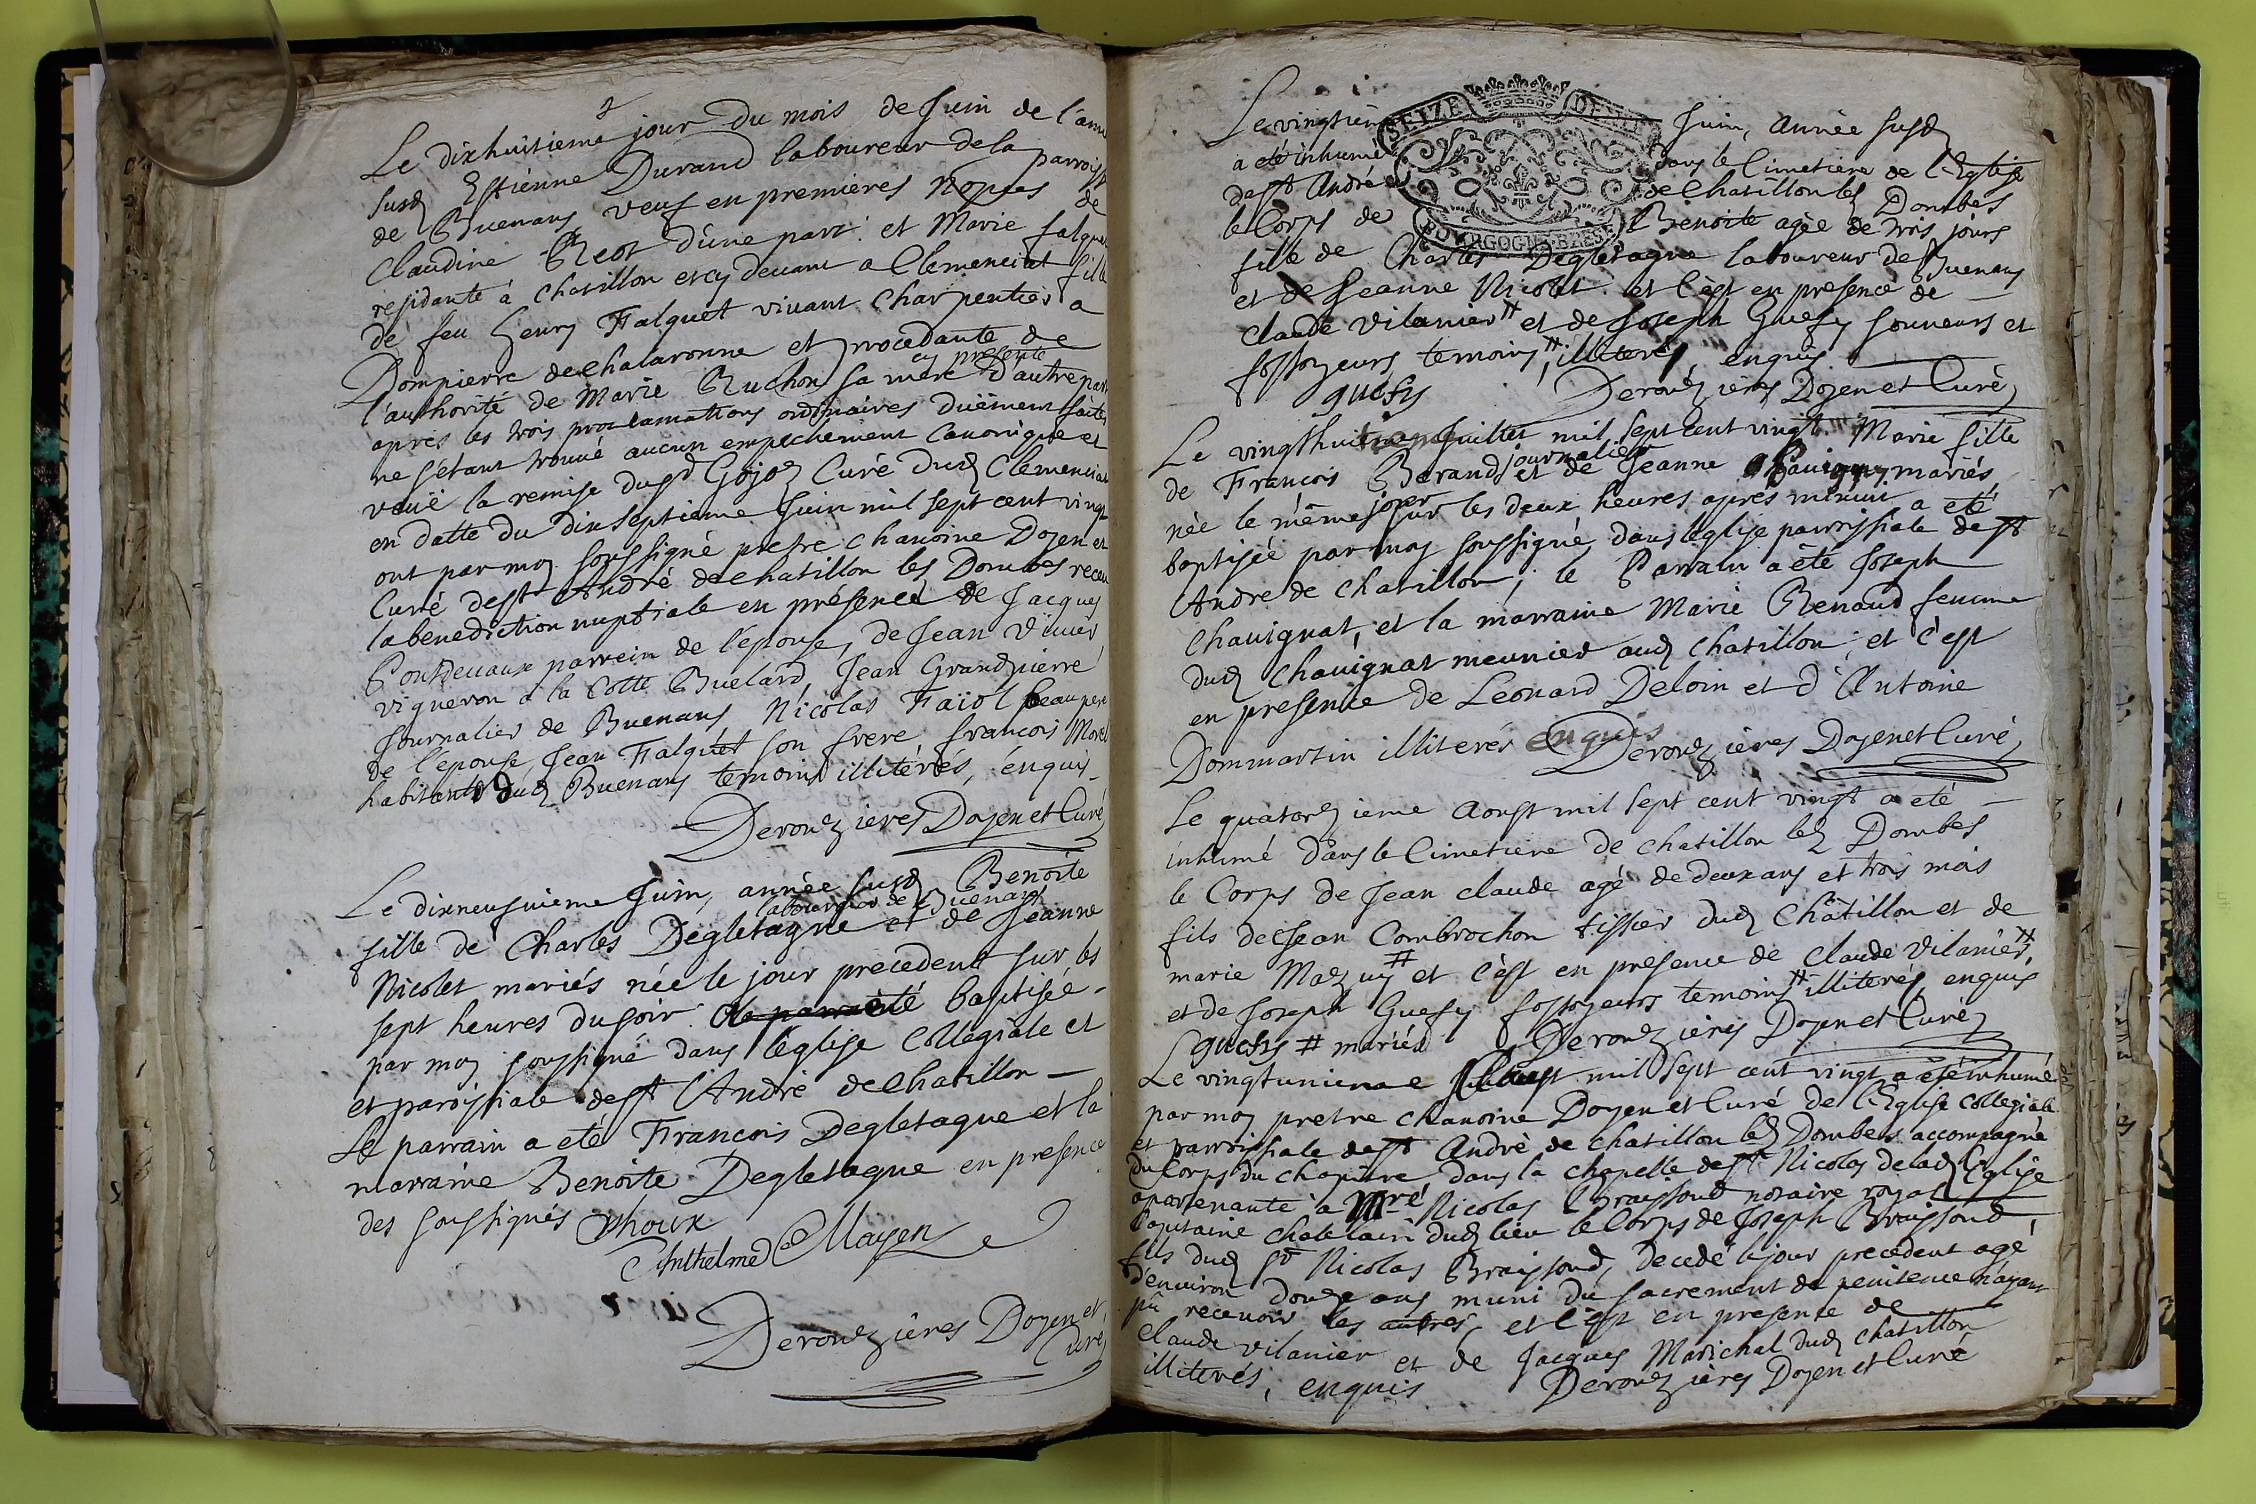 Le dixhuitieme jour du mois de Juin de l'anné
susd Estienne Durand laboureur de la parroisse
de Buenans veuf en premieres nopces de
Claudine Reot d'une part et Marie falquet
residante à Chatillon et cy devant a Clemenciat fille
de feu henry Falquet vivant charpentier a
Dompierre de chalaronne et procedante de
l'authorité de Marie Ruchon sa mere cy presente d'autre part
aprés les trois proclamations ordinaires düement faites
ne s'etant trouvé aucun empechement Canonique et
veüe la remise du sr Gojoz Curé dud Clemenciat
en datte du dixseptieme Juin mil sept cent vingt
ont par moy soussigné pretre chanoine Doyen et
Curé de st André de chatillon les Dombes receu
la benediction nuptiale en présence de Jacques
Pontdevaux parrein de l'epouse, de Jean Vivier
vigneron à la Cotte Buelard, Jean Grandpierre
Journalier de Buenans Nicolas Faïol beaupere
de l'epouse, Jean Falquet son frere françois Morel
habitants dud Buenans temoins illiterés, enquis
Derouzieres Doyen et Curé
Le dixneufvieme Juin, année susd Benoite
fille de Charles Degletagne laboureur de Buenans et de Jeanne
Nicolet mariés née le jour precedent sur les
sept heures du soir a eté baptisée
par moy soussigné dans l'église Collegiale et
et paroissiale de st André de Chatillon
Le parrain a eté François Degletagne et la
marraine Benoite Degletagne en presence
des soussignés
Anthelme Mayen
Derouzieres Doyen et
Curé
SEIZE DENIE
BOURGOGNE BRESSE
Le vingtième Juin, année susd
a eté inhumé dans le Cimetiere de l'Eglise
de st André de Chatillon les Dombes
le Corps de Benoite agée de trois jours
fille de Charles Degletagne laboureur de Buenans
et de Jeanne Nicolet et c'est en presence de
claude Vilanier # et de Joseph Guesy sonneurs et
fossoyeurs temoins, # illiteré, enquis
guesy Derouzieres Doyen et Curé
Le vingthuitieme Juillet mil sept cent vingt Marie fille
de François Berand journalier et de Jeanne mariés
née le même jour sur les deux heures apres minuit a eté
baptisée par moy soussigné dans l'église parroissiale de st
André de chatillon; le Parrain a été Joseph
Chavignat, et la marraine Marie Renaud femme
dud Chavignat meunier aud Chatillon; et c'est
en presence de Leonard Deloin et d'Antoine
Dommartin illiterés enquis Derouzieres Doyen et Curé
Le quatorzieme Aoust mil sept cent vingt a eté
inhumé dans le Cimetiere de chatillon lez Dombes
le Corps de Jean claude agé de deux ans et trois mois
fils de Jean Combrochon tissier dud Châtillon et de
marie Mazuy # et c'est en presence de claude Vilanier #
et de Joseph Guesy fossoyeurs temoins # illiterés, enquis
guesy # mariés Derouzieres Doyen et Curé
Le vingtunieme Aoust mil sept cent vingt a eté inhumé
par moy pretre chanoine Doyen et Curé de l'Eglise collegiale
et parroissiale de st André de chatillon lez Dombes accompagné
du Corps du chapitre dans la chapelle de st Nicolas de lad Eglise
apartenante à Mre Nicolas Braissoud notaire royal
Capitaine chatelain dud lieu le Corps de Joseph Braissoud
fils dud sr Nicolas Braissoud, decedé le jour precedent agé
d'environ douze ans muni du sacrement de penitence n'ayant
pû recevoir les autres, et c'est en presence de
claude vilanier et de Jacques Marichal dud chatillon
illiterés, enquis Derouzieres Doyen et Curé